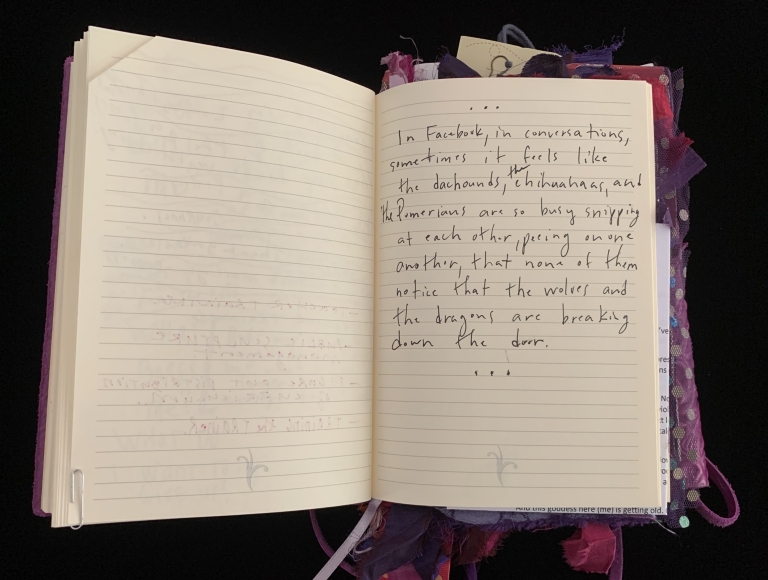 ...
In Facebook, in conversations,
sometimes it feels like
the dachounds, the chihuahaas, and
the Pomerians are so busy snipping
at each other, peeing on one
another, that none of them
notice that the wolves and
the dragons are breaking
down the door.
...
And this goddess here (me) is getting old.